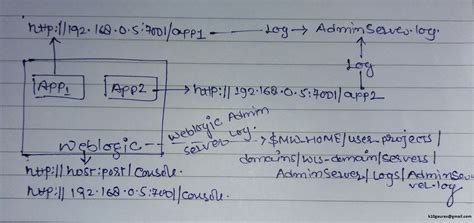 http://192.168.0.5:7001/app1 Log → AdminServer.log.
Log
App1 App2 → http://192.168.0.5:7001/app2
Weblogic Weblogic Admin
server Log. → $MW_HOME/user_projects/
domains/wls-domain/servers/
AdminServer/Logs/AdminServe
r.log
http://host:port/console.
http://192.168.0.5:7001/console.
k10gaurav@gmail.com